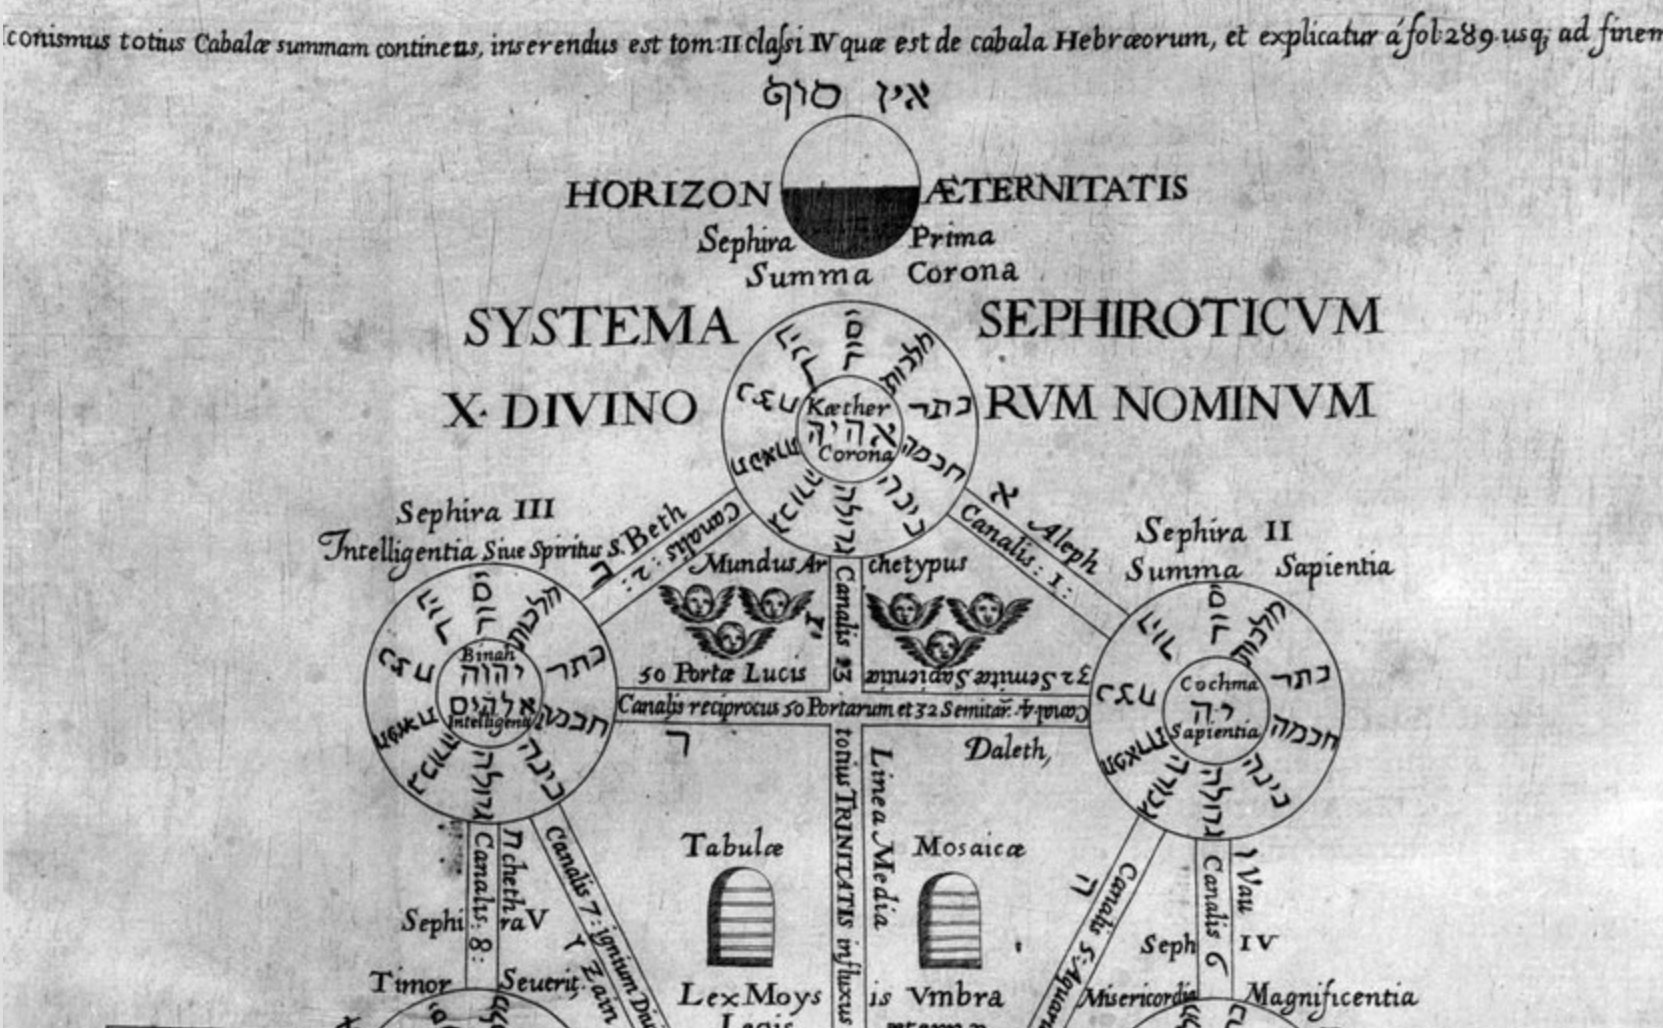 Iconismus totius Cabalæ summam continens, inserendus est tom: II classi IV quæ est de cabala Hebræorum, et explicatur á fol: 289. usq; ad finem
אין סוף
HORIZON ÆTERNITATIS
Sephira Prima
Summa Corona
SYSTEMA SEPHIROTICVM
X. DIVINO RVM NOMINVM
Kæther
אהיה
Corona
כתר
חכמה
בינה
גדולה
Sephira III
Intelligentia Siue Spiritus S.
Beth
ב
Canalis: 2:
א Aleph
Canalis: 1:
Sephira II
Summa Sapientia
Mundus Archetypus
Canalis 13 totius TRINITATIS influxus
50 Portæ Lucis
32 Semitæ Sapientiæ
Canalis reciprocus 50 Portarum et 32 Semitar.
Canal 4
Daleth,
Binah
יהוה
אלהים
כתר
חכמה
בינה
גדולה
Cochma
יה
Sapientia
מלכות
כתר
חכמה
בינה
גדולה
גבורה
Linea Media
Tabulæ Mosaicæ
ח cheth
Canalis: 8:
Canalis 7: ignium
ז Zain
ה
Canalis 5: Aquarum
ו Vau
Canalis 6
Sephira V
Seph IV
Timor Seuerit,
Lex Moysis Vmbra
Misericordia Magnificentia
Legis